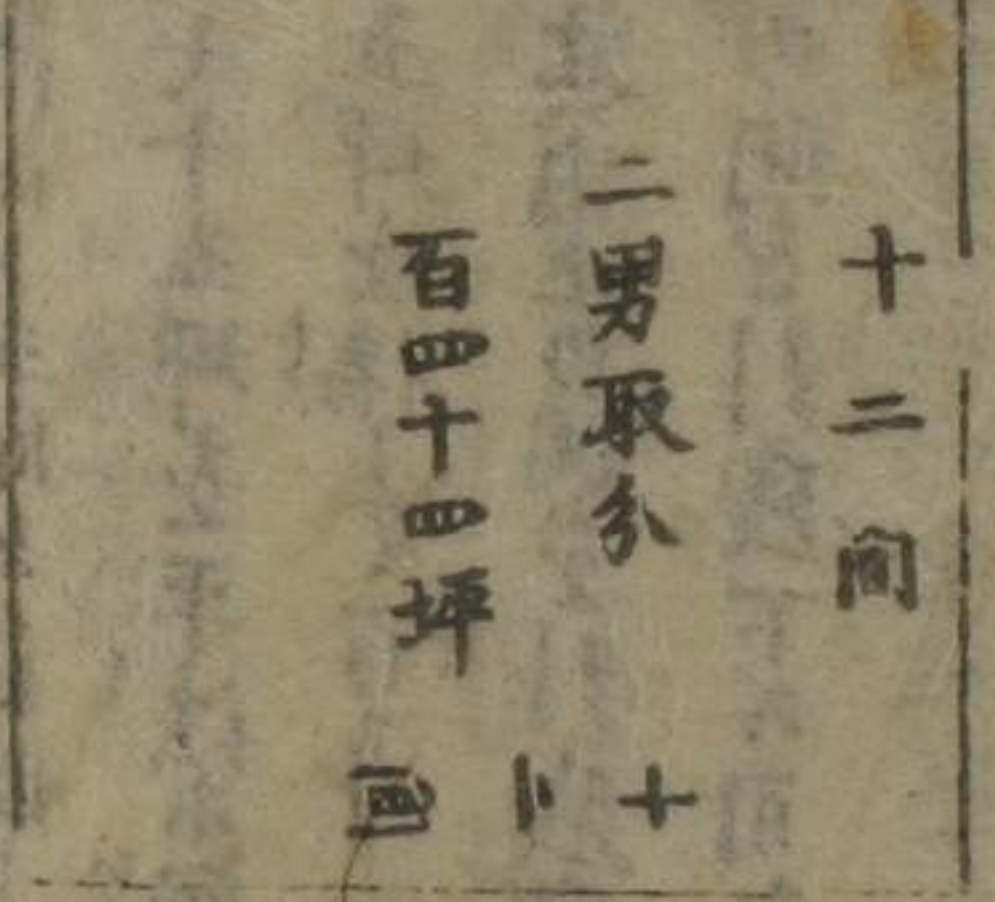 十二間
二男取分
百四十四坪
十二間